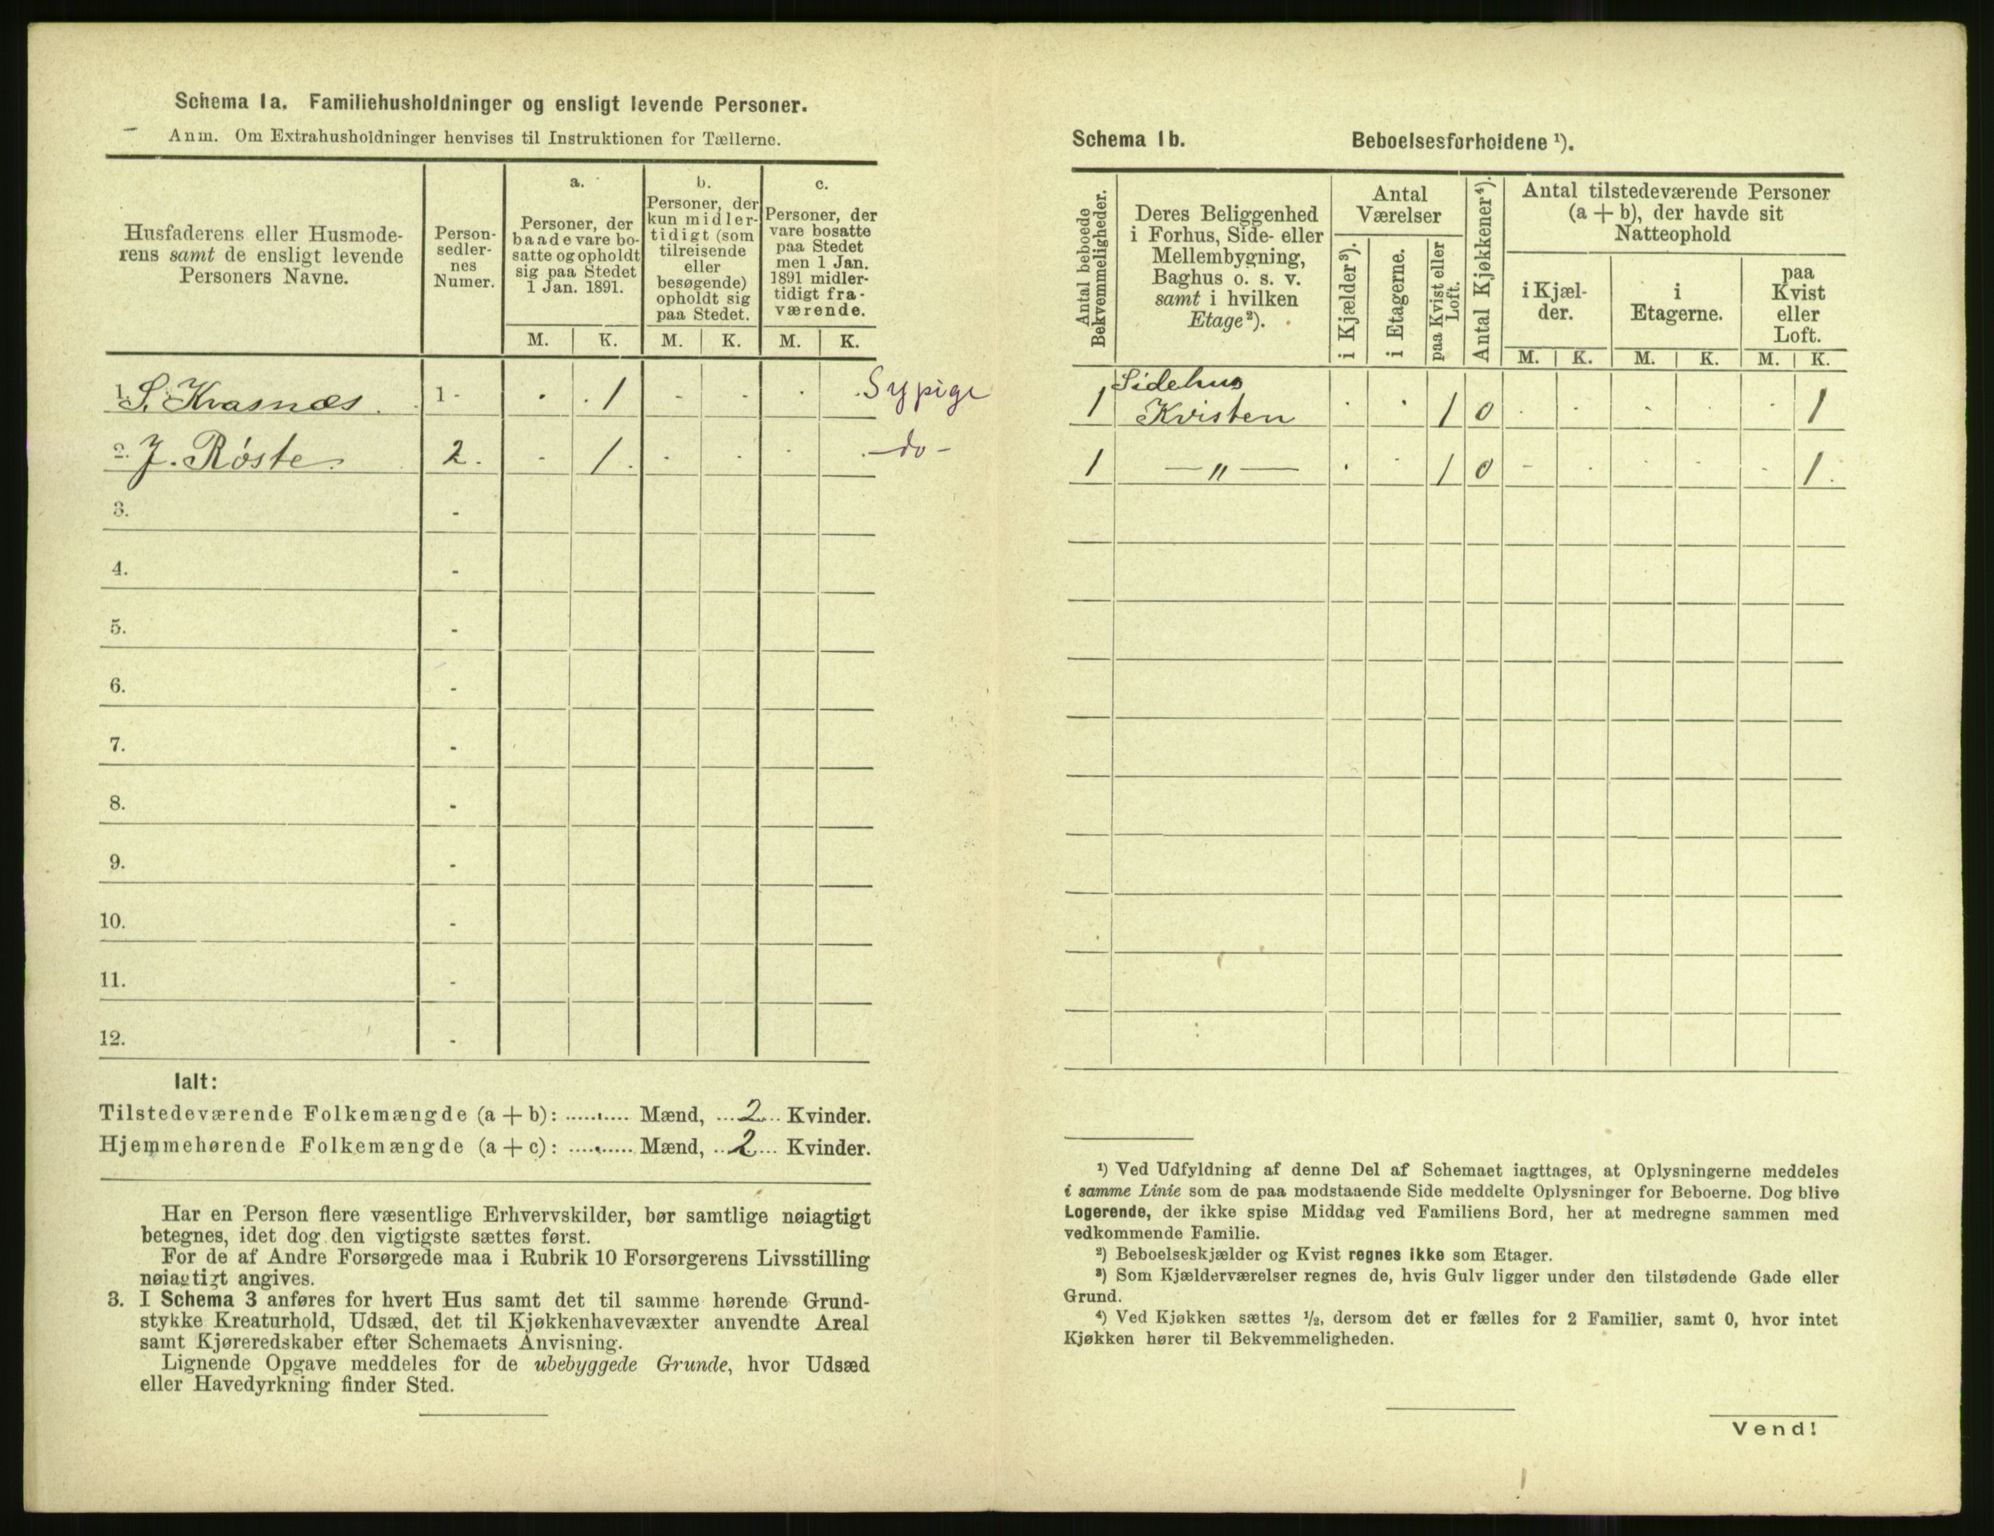 Schema 1a. Familiehusholdninger og ensligt levende Personer.
Anm. Om Extrahusholdninger henvises til Instruktionen for Tællerne.
Husfaderens eller Husmode-
rens samt de ensligt levende
Personers Navne.
Person-
sedler-
nes
Numer.
a.
Personer, der
baade vare bo-
satte og opholdt
sig paa Stedet
1 Jan. 1891.
b.
Personer, der
kun midler-
tidigt (som
tilreisende
eller
besøgende)
opholdt sig
paa Stedet.
c.
Personer, der
vare bosatte
paa Stedet
men 1 Jan.
1891 midler-
tidigt fra-
værende.
M. K. M. K. M. K.
1. S. Kvasnæs. 1 - · · 1 - - · Sypige
2. J. Røste. 2. - 1. - · · - do -
3. -
4. -
5. -
6. -
7. -
8. -
9. -
10. -
11. -
12. -
Ialt:
Tilstedeværende Folkemængde (a + b): ........... Mænd, ...2... Kvinder.
Hjemmehørende Folkemængde (a + c): ........... Mænd, ...2... Kvinder.
Har en Person flere væsentlige Erhvervskilder, bør samtlige nøiagtigt
betegnes, idet dog den vigtigste sættes først.
For de af Andre Forsørgede maa i Rubrik 10 Forsørgerens Livsstilling
nøiagtigt angives.
3. I Schema 3 anføres for hvert Hus samt det til samme hørende Grund-
stykke Kreaturhold, Udsæd, det til Kjøkkenhavevæxter anvendte Areal
samt Kjøreredskaber efter Schemaets Anvisning.
Lignende Opgave meddeles for de ubebyggede Grunde, hvor Udsæd
eller Havedyrkning finder Sted.
Schema 1b. Beboelsesforholdene ¹).
Antal beboede
Bekvemmeligheder.
Deres Beliggenhed
i Forhus, Side- eller
Mellembygning,
Baghus o. s. v.
samt i hvilken
Etage²).
Antal
Værelser
i Kjælder³).
i Etagerne.
paa Kvist eller
Loft.
Antal Kjøkkener⁴).
Antal tilstedeværende Personer
(a + b), der havde sit
Natteophold
i Kjæl-
der.
i
Etagerne.
paa
Kvist
eller
Loft.
M. K. M. K. M. K.
1 Sidehus
Kvisten · · 1 0 · · · · · 1
1 — " — · · 1 0 - · · · - 1.
¹) Ved Udfyldning af denne Del af Schemaet iagttages, at Oplysningerne meddeles
i samme Linie som de paa modstaaende Side meddelte Oplysninger for Beboerne. Dog blive
Logerende, der ikke spise Middag ved Familiens Bord, her at medregne sammen med
vedkommende Familie.
²) Beboelseskjælder og Kvist regnes ikke som Etager.
³) Som Kjælderværelser regnes de, hvis Gulv ligger under den tilstødende Gade eller
Grund.
⁴) Ved Kjøkken sættes ½, dersom det er fælles for 2 Familier, samt 0, hvor intet
Kjøkken hører til Bekvemmeligheden.
Vend!